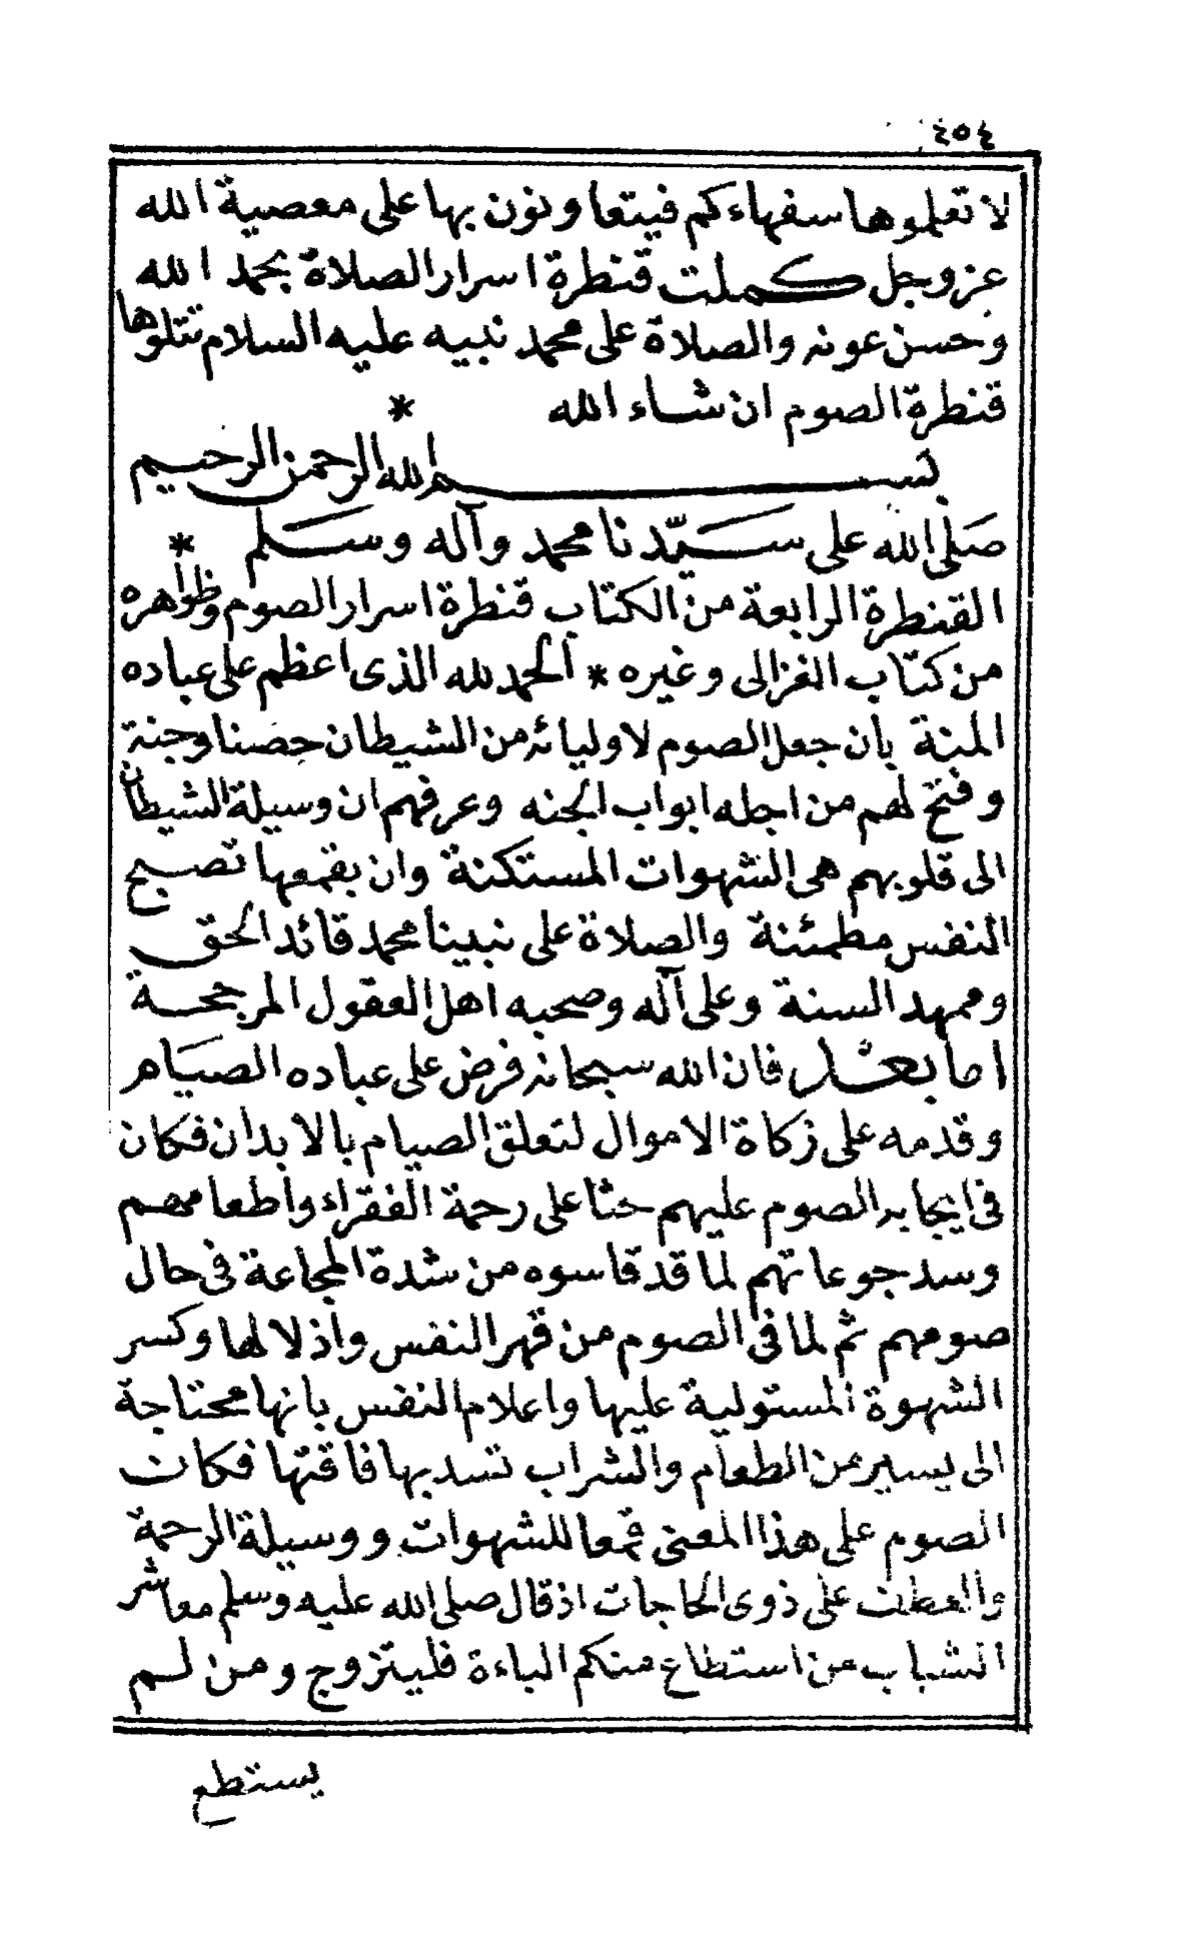 ٤٥٤
لا تعلموها سفهاءكم فيتعاونون بها على معصية الله
عز وجل كملت قنطرة اسرار الصلاة بحمد الله
وحسن عونه والصلاة على محمد نبيه عليه السلام تتلوها
قنطرة الصوم ان شاء الله *
بسم الله الرحمن الرحيم
صلى الله على سيّدنا محمد وآله وسلم *
القنطرة الرابعة من الكتاب قنطرة اسرار الصوم وظواهره
من كتاب الغزالى وغيره * الحمد لله الذى اعظم على عباده
المنة بأن جعل الصوم لاوليائه من الشيطان حصنا وجنة
وفتح لهم من اجله ابواب الجنه وعرفهم ان وسيلة الشيطان
الى قلوبهم هى الشهوات المستكنة وان بقمعها تصبح
النفس مطمئنة والصلاة على نبينا محمد قائد الحق
وممهد السنة وعلى آله وصحبه اهل العقول المرجحة
اما بعد فان الله سبحانه فرض على عباده الصيام
وقدمه على زكاة الاموال لتعلق الصيام بالابدان فكان
فى ايجابه الصوم عليهم حثا على رحمة الفقراء واطعامهم
وسد جوعاتهم لما قد قاسوه من شدة المجاعة فى حال
صومهم ثم لما فى الصوم من قهر النفس واذلالها وكسر
الشهوة المستولية عليها واعلام النفس بانها محتاجة
الى يسير من الطعام والشراب تسد بها فاقتها فكان
الصوم على هذا المعنى قمعا للشهوات ووسيلة الرحمة
والعطف على ذوى الحاجات اذ قال صلى الله عليه وسلم معاشر
الشباب من استطاع منكم الباءة فليتزوج ومن لم
يستطع